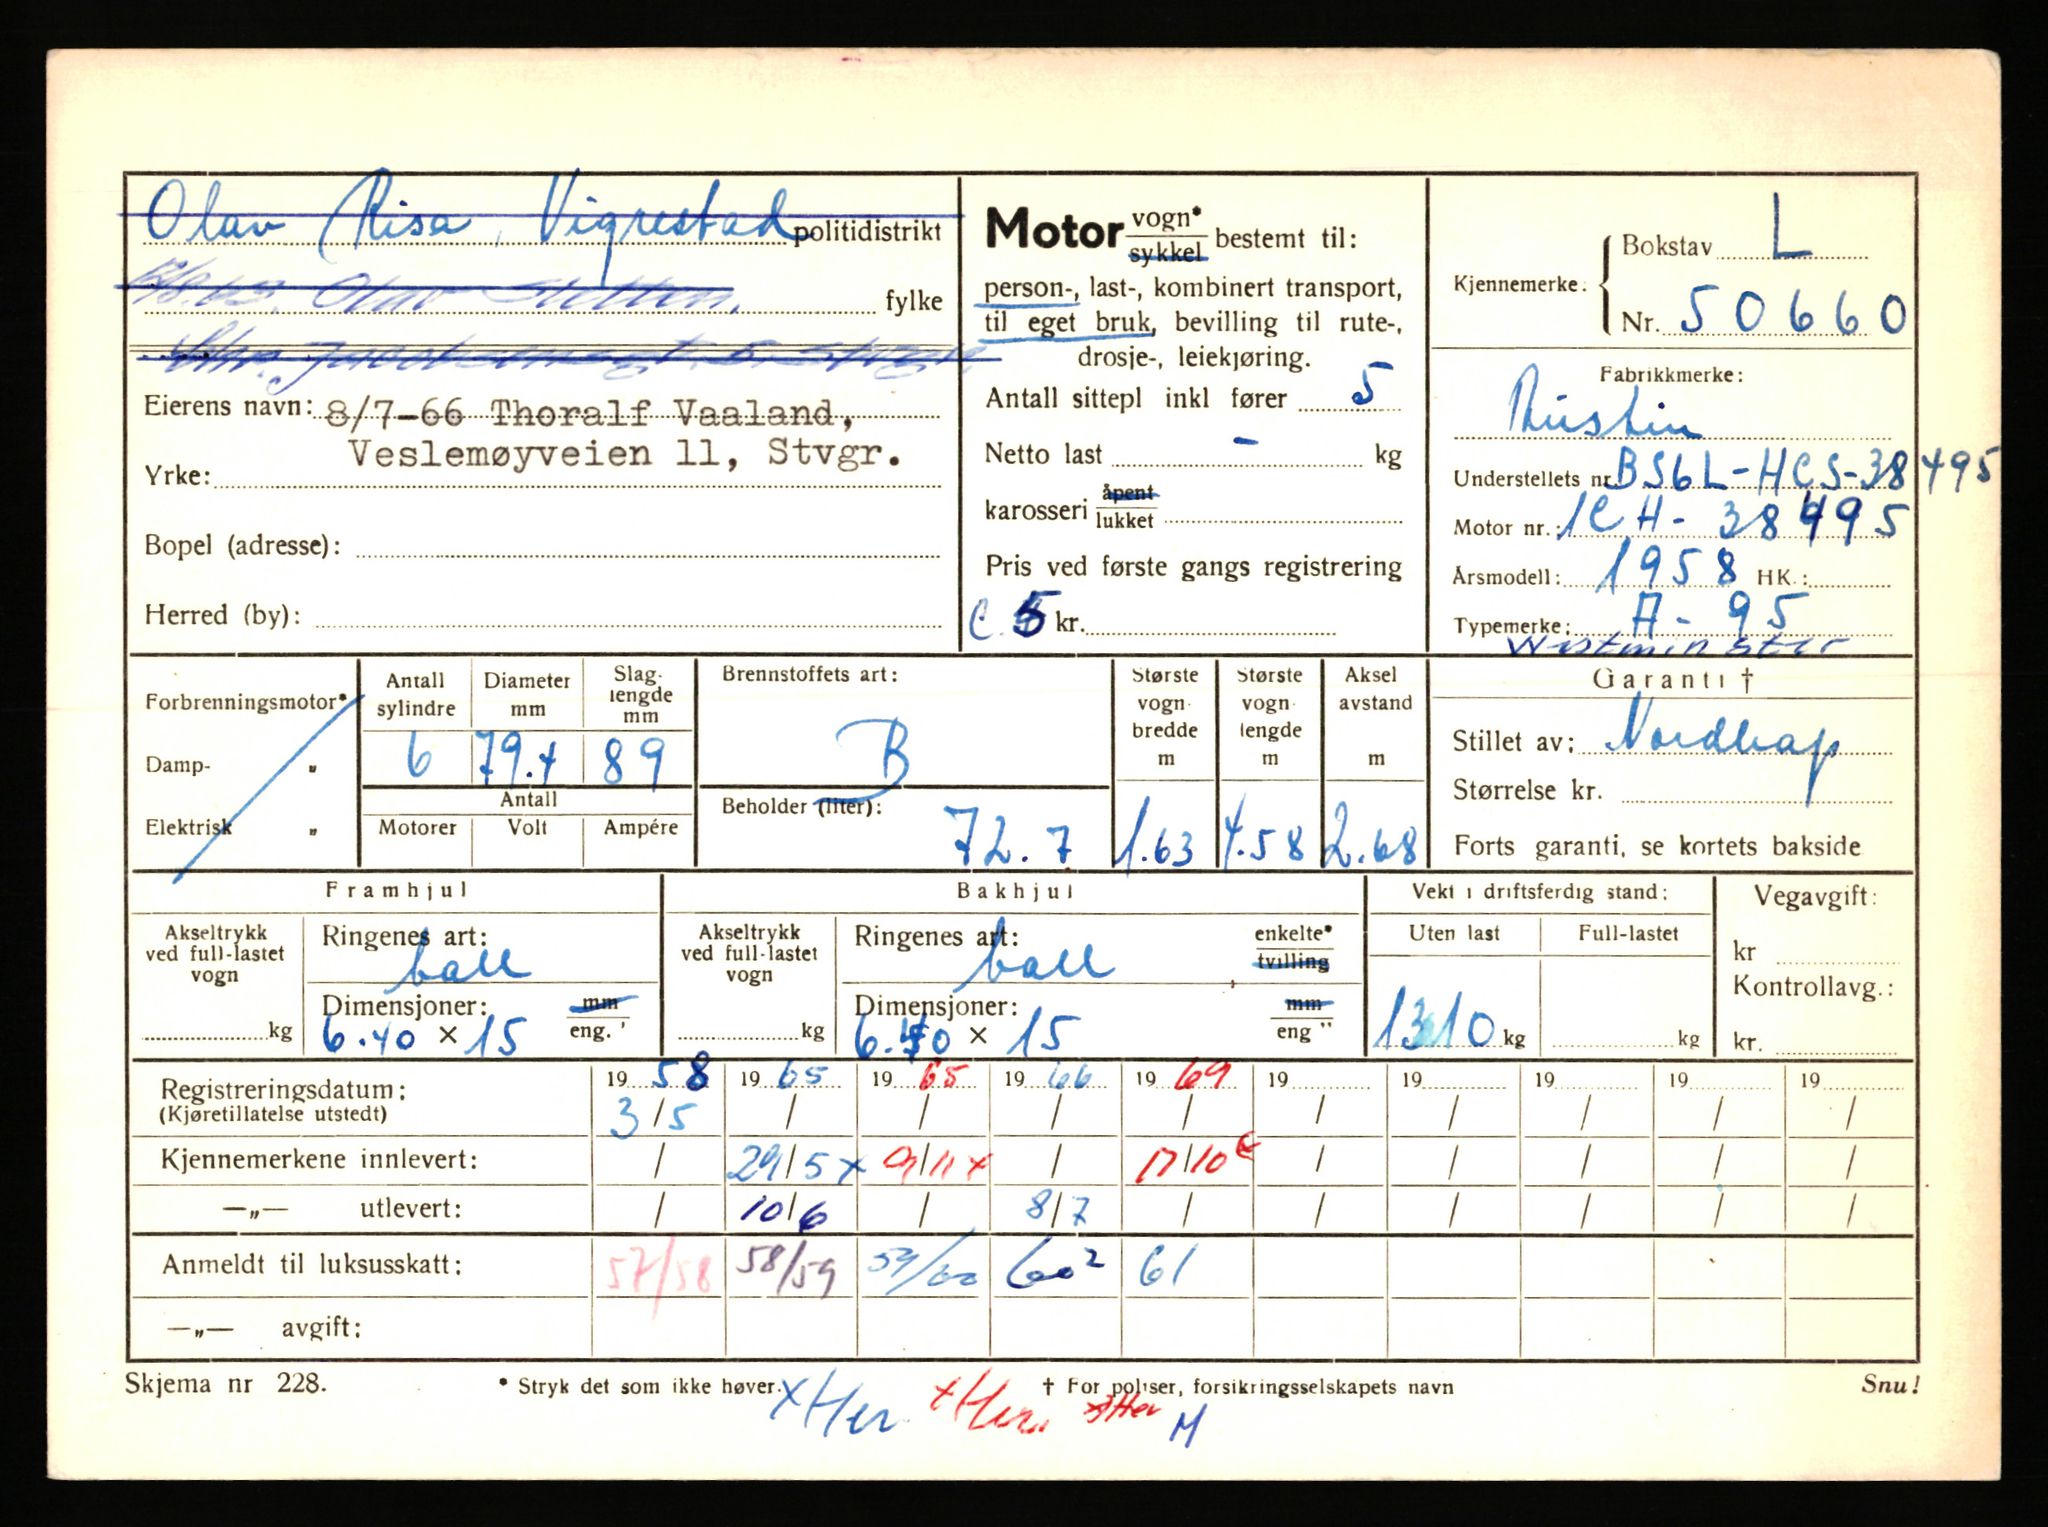 Olav Risa, Vigrestad politidistrikt
Olav fylke
Eierens navn: 8/7-66 Thoralf Vaaland,
Veslemøyveien 11, Stvgr.
Yrke:
Bopel (adresse):
Herred (by):
Motor vogn* / sykkel bestemt til:
person-, last-, kombinert transport,
til eget bruk, bevilling til rute-,
drosje-, leiekjøring.
Antall sittepl inkl fører 5
Netto last - kg
karosseri åpent / lukket
Pris ved første gangs registrering
C. 5 kr.
Kjennemerke: Bokstav L
Nr. 50660
Fabrikkmerke:
Austin
Understellets nr. BS6L-HCS-38495
Motor nr.: 1CH-38495
Årsmodell: 1958 HK.:
Typemerke: A-95
Westminster
Forbrenningsmotor*
Damp- "
Elektrisk "
Antall sylindre
6
Diameter mm
79.4
Slag-lengde mm
89
Antall
Motorer Volt Ampére
Brennstoffets art:
B
Beholder (liter):
72.7
Største vogn-bredde m
1.63
Største vogn-lengde m
4.58
Aksel avstand m
2.68
Garanti †
Stillet av: Nordkap
Størrelse kr.
Forts garanti, se kortets bakside
Framhjul
Akseltrykk ved full-lastet vogn
kg
Ringenes art:
ball
Dimensjoner: mm / eng.'
6.40 × 15
Bakhjul
Akseltrykk ved full-lastet vogn
kg
Ringenes art: enkelte* / tvilling
ball
Dimensjoner: mm / eng "
6.40 × 15
Vekt i driftsferdig stand:
Uten last Full-lastet
1310 kg kg
Vegavgift:
kr
Kontrollavg.:
kr.
Registreringsdatum: 19 58 19 65 19 65 19 66 19 69 19 19 19 19 19
(Kjøretillatelse utstedt) 3/5 / / / / / / / / /
Kjennemerkene innlevert: / 29/5 x 9/11 x / 17/10 / / / / /
—„— utlevert: / 10/6 / 8/7 / / / / / /
Anmeldt til luksusskatt: 57/58 58/59 59/60 60² 61
—„— avgift:
Skjema nr 228. * Stryk det som ikke høver. † For poliser, forsikringsselskapets navn Snu!
x Her. x Her. x Her M